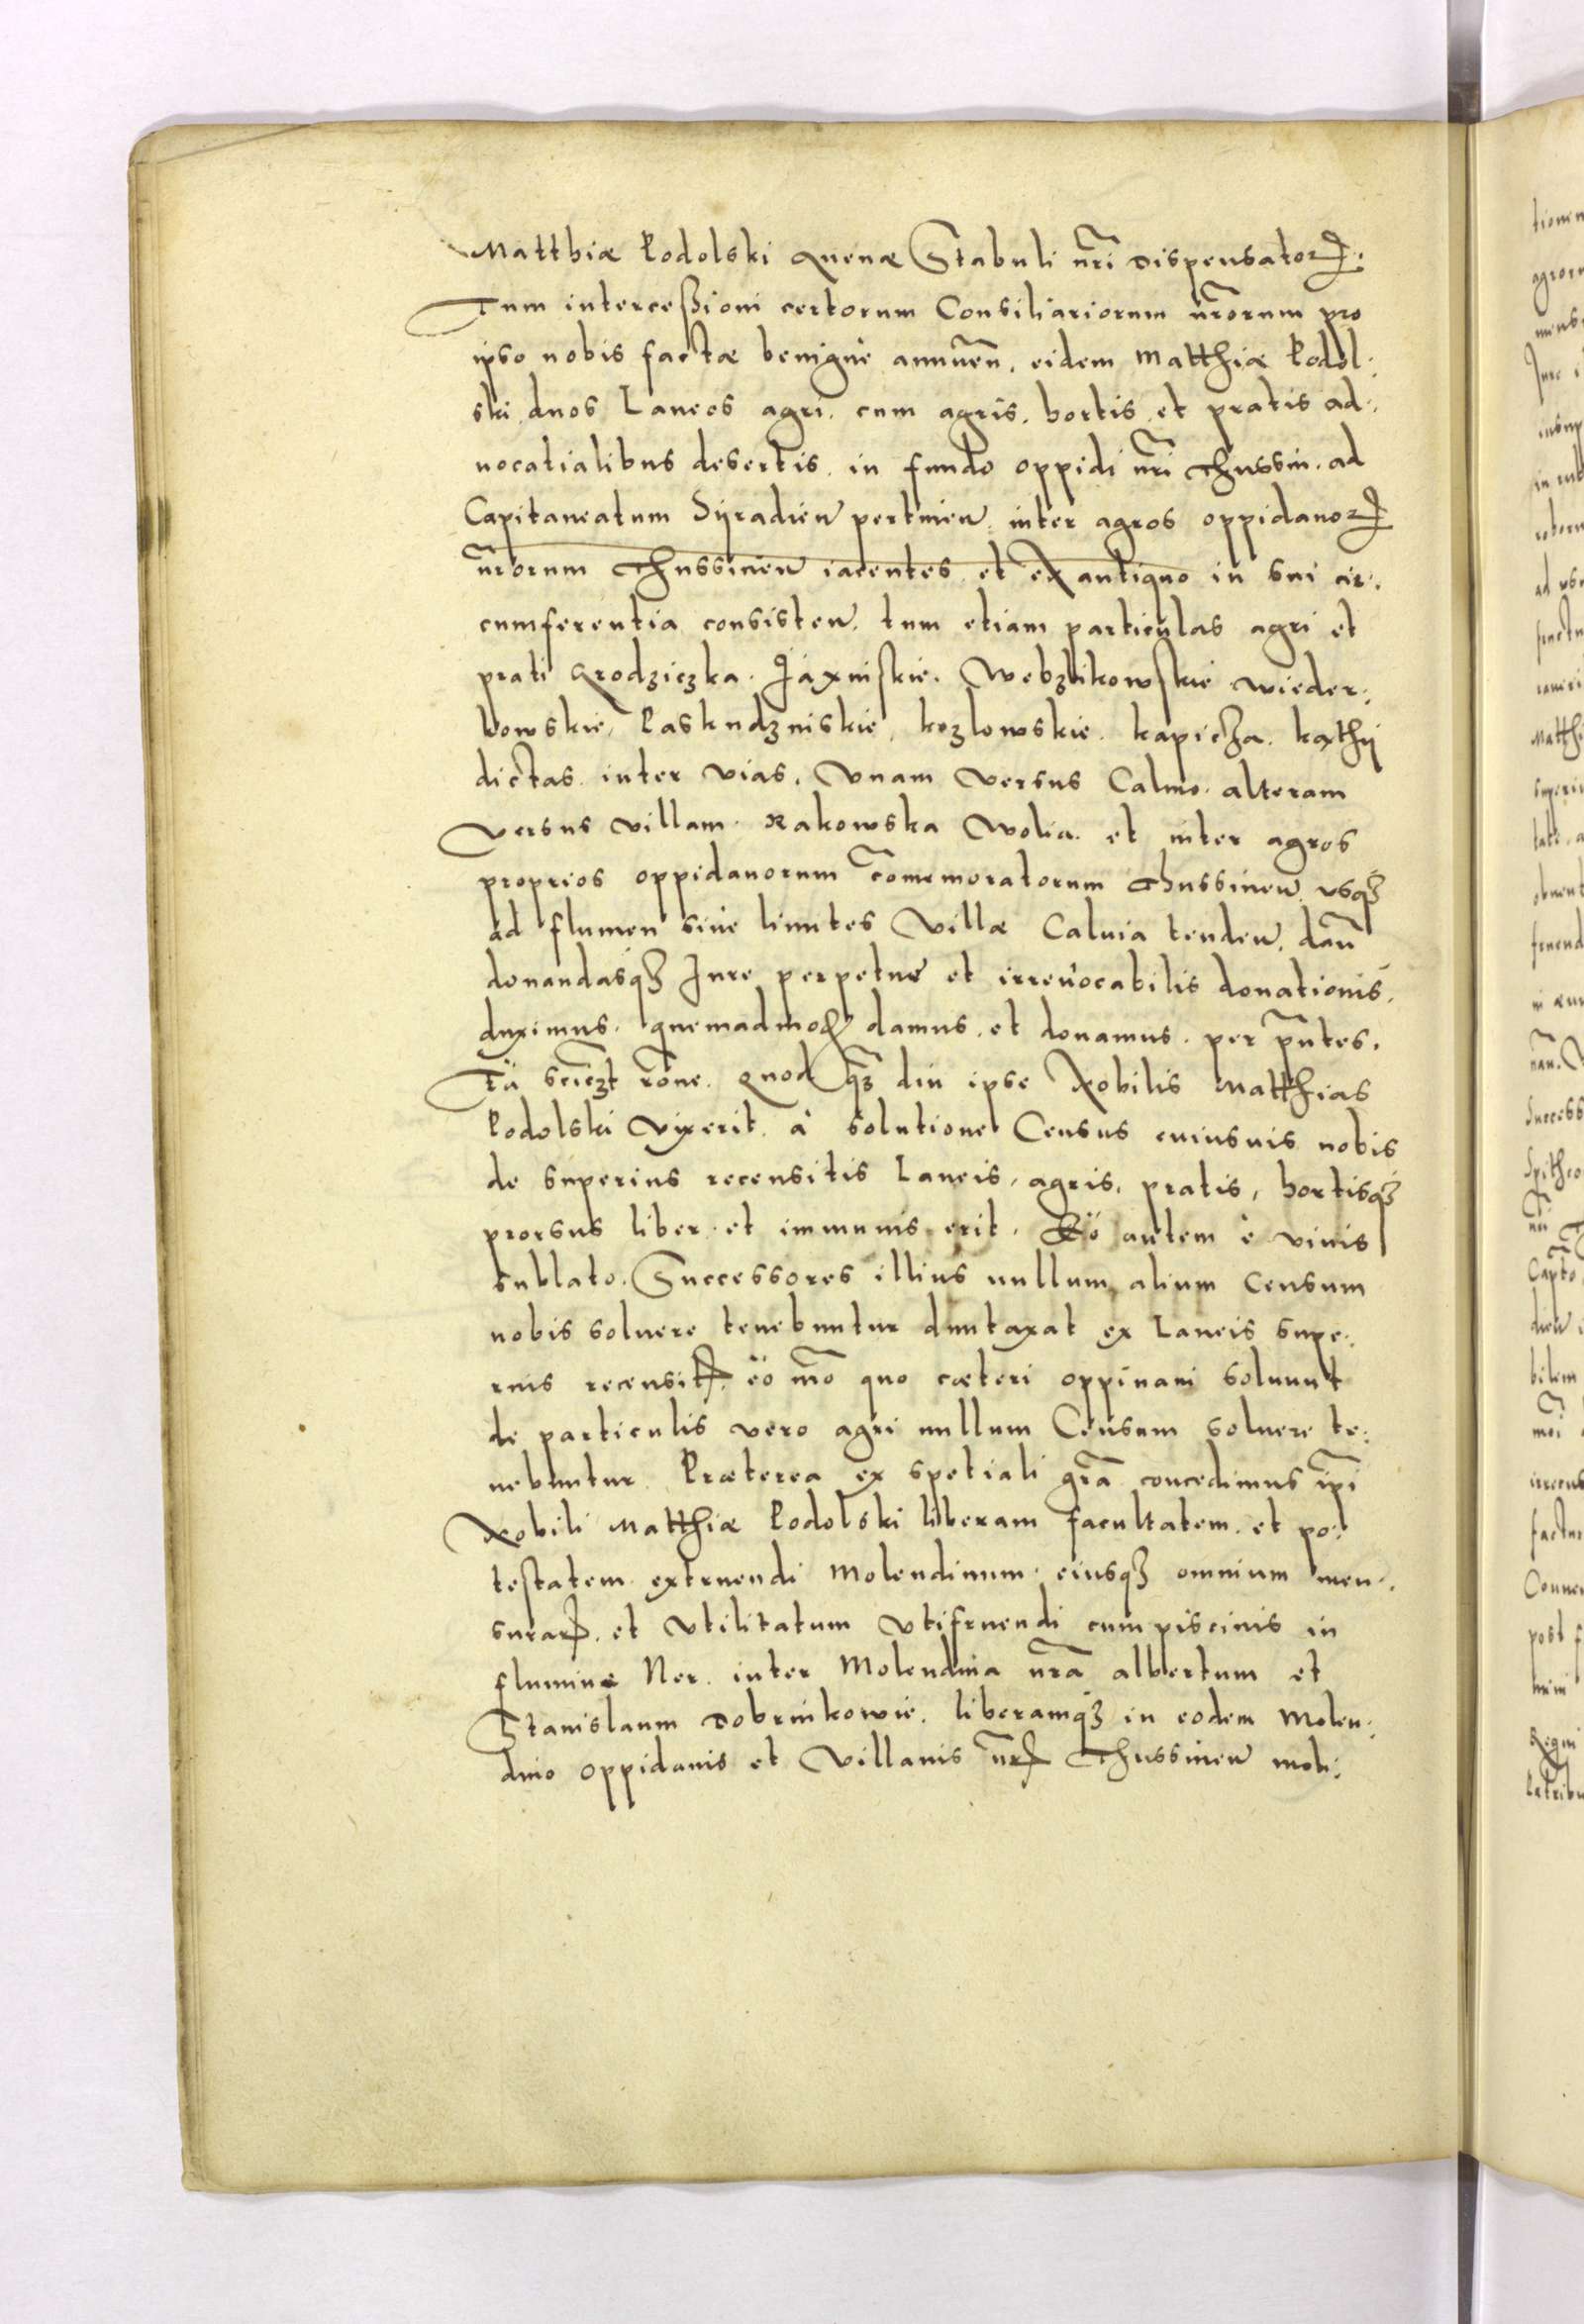 Matthiæ Podolski Auenæ Stabuli nr̃i Dispensatorꝭ.
Tum intercessioni certorum Consiliariorum nr̃orum pro
ipso nobis factæ benigne annueñ. eidem Matthiæ Podol:
ski duos Laneos agri. cum agris. hortis et pratis ad:
uocatialibus desertis in fundo oppidi nr̃i Thussin. ad
Capitaneatum Syradień pertineń inter agros oppidanoꝝ
nr̃orum Thussineń iacentes et ex antiquo in sui cir:
cumferentia consisteń. tum etiam particulas agri et
prati Grodziczka. Jaxinskie. Webzlikowskie wieder:
kowskie, Paskudzniskie, kozlowskie. kapicza. kąthy
dictas inter vias. vnam versus Calino. alteram
versus villam Rakowska Wolia. et inter agros
proprios oppidanorum com̃emoratorum Thussineń vsqꝫ
ad flumen siue limites Villæ Caluia tendeń. dañ
donandasqꝫ Jure perpetuæ et irreuocabilis donationis
duximus. quemadmoꝺ damus et donamus. per p̃ntes.
Ea scilicꝫt rõne. Quod qꝫ diu ipse Nobilis Matthias
Podolski vixerit. à solutione Census cuiusuis nobis
de superius recensitis Laneis, agris, pratis, hortisqꝫ
prorsus liber et immunis erit. Eo autem è viuis
sublato. Successores illius nullum alium Censum
nobis soluere tenebuntur duntaxat ex Laneis supe:
rius recensitꝭ, eo mõ quo cæteri oppinani soluunt
de particulis vero agri nullum Censum soluere te:
nebuntur. Præterea ex spetiali grã concedimus ip̃i
Nobili Matthiæ Podolski liberam facultatem et po:
testatem extruendi Molendinum eiusqꝫ omnium men:
suraꝝ. et vtilitatum vtifruendi cum piscinis in
flumine Ner. inter Molendina nr̃a albertum et
Stanislaum Dobrnikowie. liberamqꝫ in eodem Molen:
dino oppidanis et Villanis nr̃ꝭ Thussineń moli: